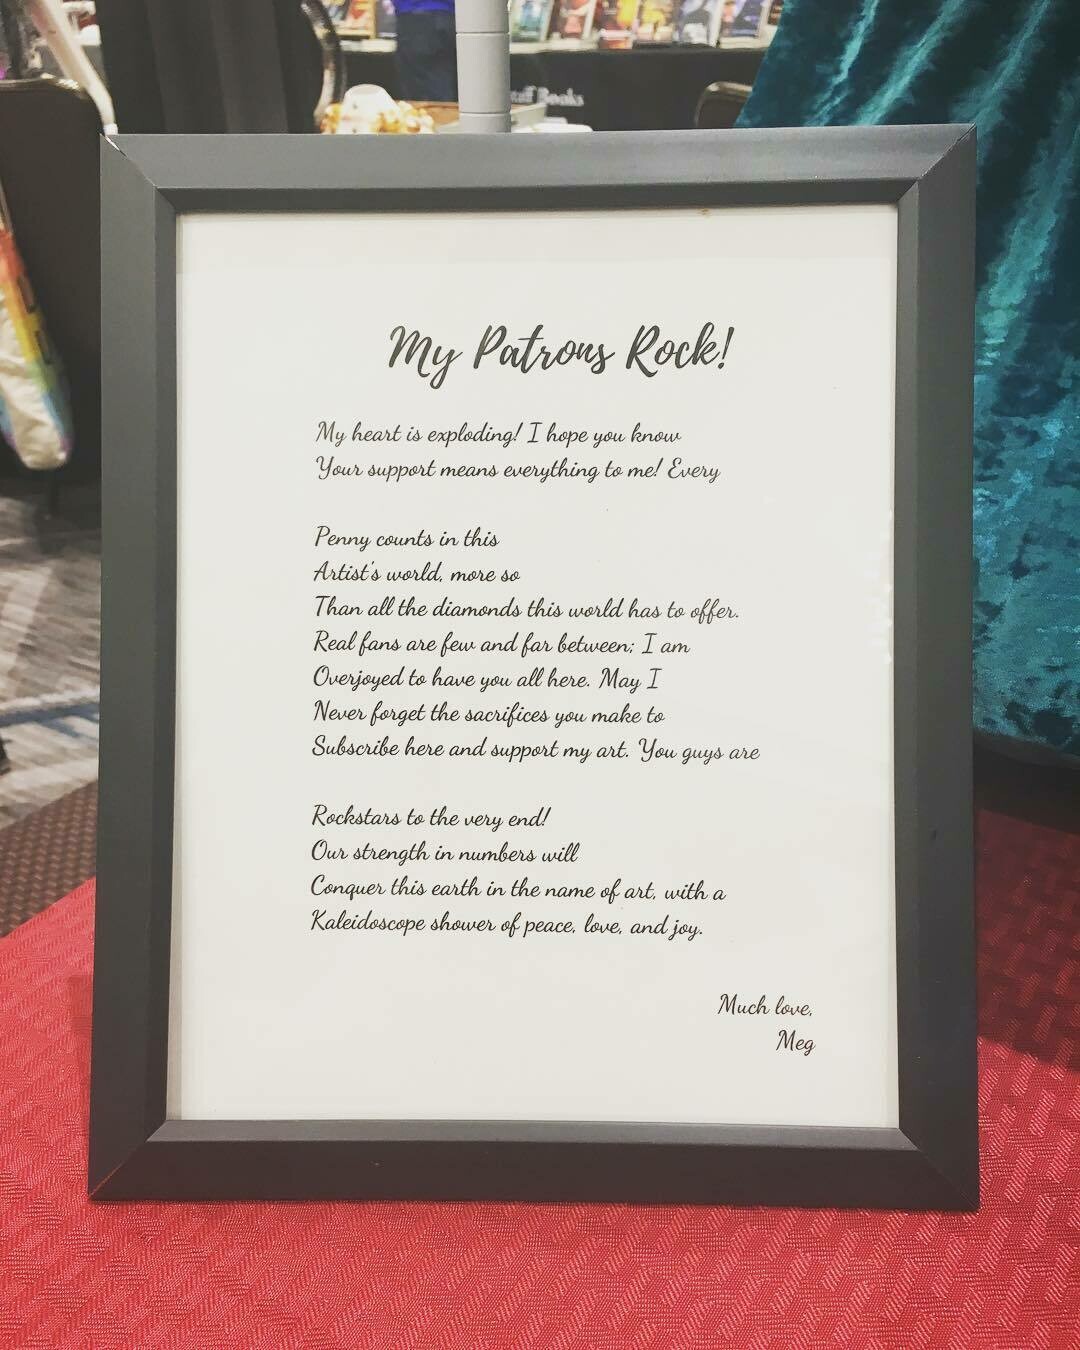 Stuff Books
My Patrons Rock!
My heart is exploding! I hope you know
Your support means everything to me! Every
Penny counts in this
Artist's world, more so
Than all the diamonds this world has to offer.
Real fans are few and far between; I am
Overjoyed to have you all here. May I
Never forget the sacrifices you make to
Subscribe here and support my art. You guys are
Rockstars to the very end!
Our strength in numbers will
Conquer this earth in the name of art, with a
Kaleidoscope shower of peace, love, and joy.
Much love,
Meg